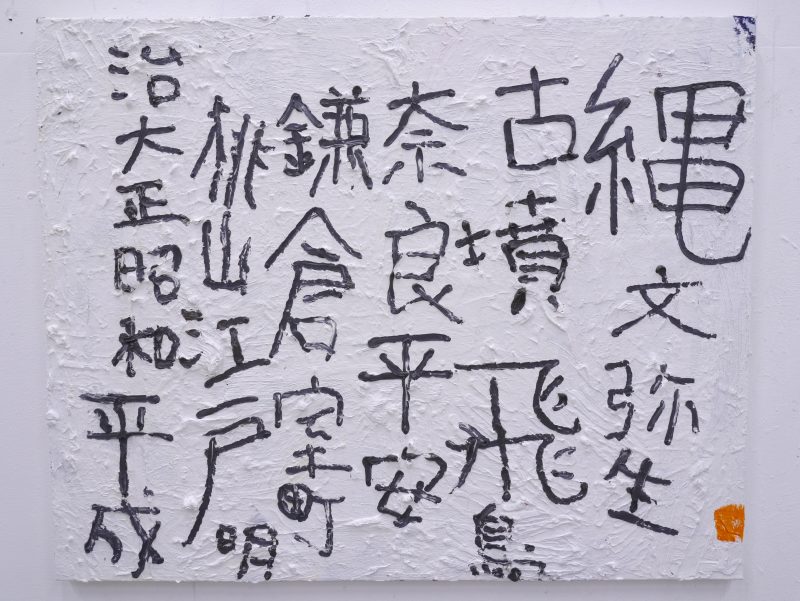 縄文弥生
古墳飛鳥
奈良平安
鎌倉室町
桃山江戸明
治大正昭和平成